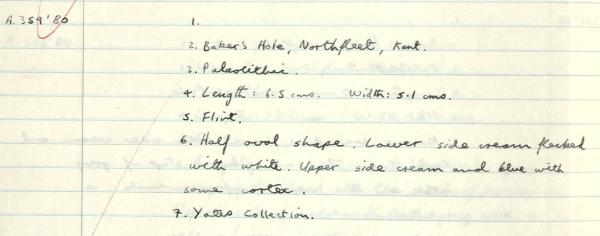 A.359'80
1.
2. Baker's Hole, Northfleet, Kent.
3. Palaeolithic.
4. Length: 6.5 cms. Width: 5.1 cms.
5. Flint.
6. Half oval shape. Lower side cream flecked
with white. Upper side cream and blue with
some cortex.
7. Yates Collection.